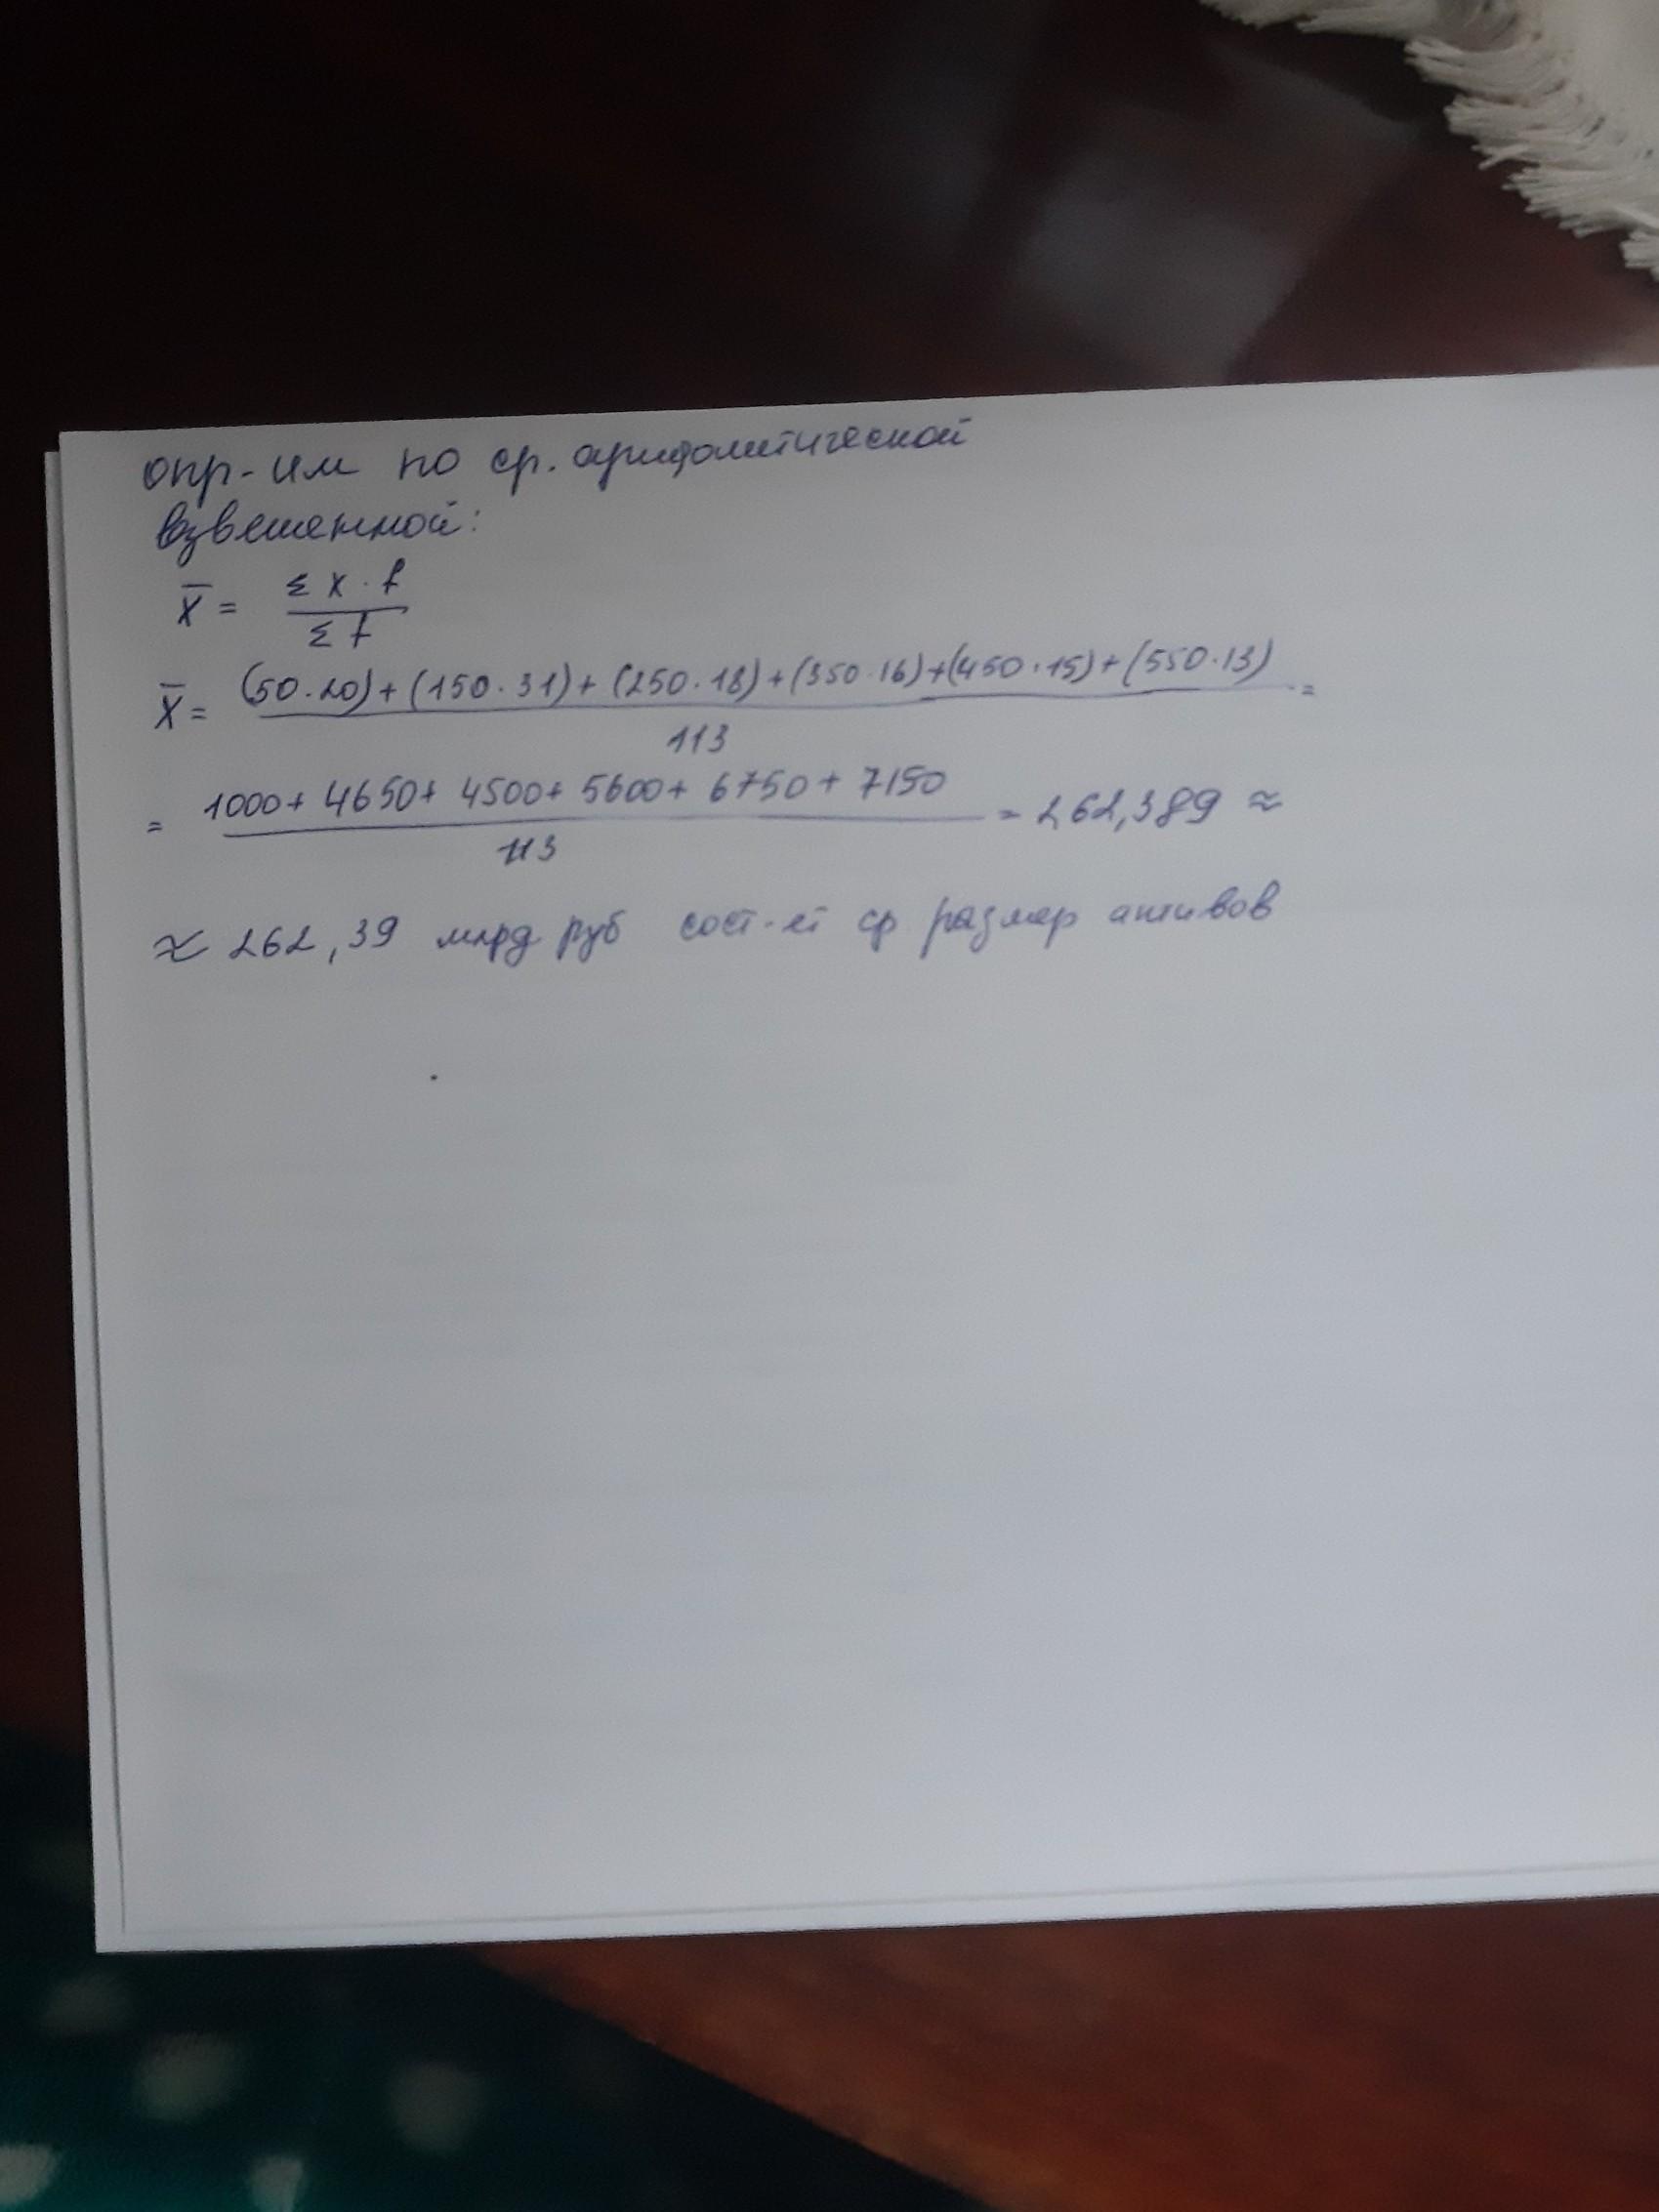 опр-им по ср. арифметической
взвешенной:
X̄ = Σ X · f / Σ f
X̄ = (50·20)+(150·31)+(250·18)+(350·16)+(450·15)+(550·13) / 113 =
= 1000+4650+4500+5600+6750+7150 / 113 = 262,389 ≈
≈ 262,39 млрд руб сост-ет ср размер активов